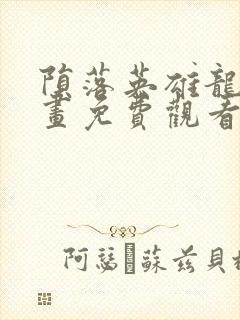 堕落英雄龍
畫免費觀看
阿瑟·蘇茲貝